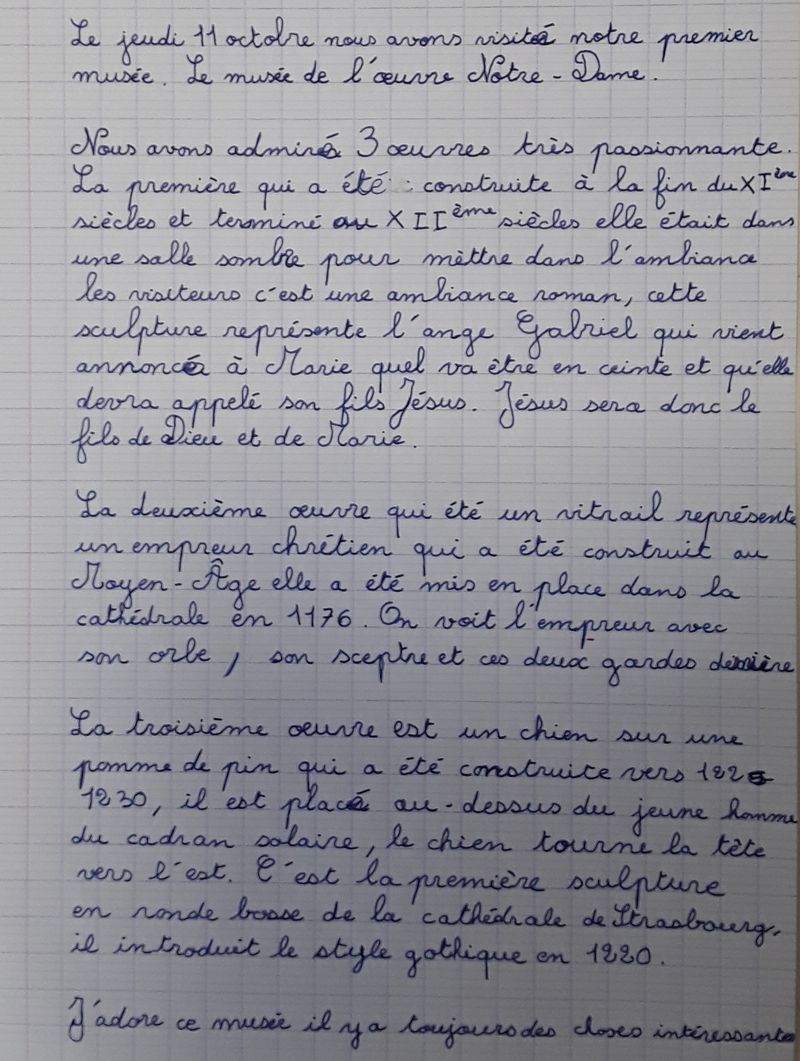 Le jeudi 11 octobre nous avons visité notre premier
musée. Le musée de l'œuvre Notre-Dame.
Nous avons admiré 3 œuvres très passionnante.
La première qui a été construite à la fin du XI ème
siècles et terminé au XII ème siècles elle était dans
une salle sombre pour mèttre dans l'ambiance
les visiteurs c'est une ambiance roman, cette
sculpture représente l'ange Gabriel qui vient
annoncer à Marie quel va être en ceinte et qu'elle
devra appelé son fils Jésus. Jésus sera donc le
fils de Dieu et de Marie.
La deuxième œuvre qui été un vitrail représente
un empreur chrétien qui a été construit au
Moyen-Âge elle a été mis en place dans la
cathédrale en 1176. On voit l'empreur avec
son orbe, son sceptre et ces deux gardes derrière
La troisième œuvre est un chien sur une
pomme de pin qui a été construite vers 1225
1230, il est placé au-dessus du jeune homme
du cadran solaire, le chien tourne la tête
vers l'est. C'est la première sculpture
en ronde bosse de la cathédrale de Strasbourg,
il introduit le style gothique en 1220.
J'adore ce musée il y a toujours des choses intéressante